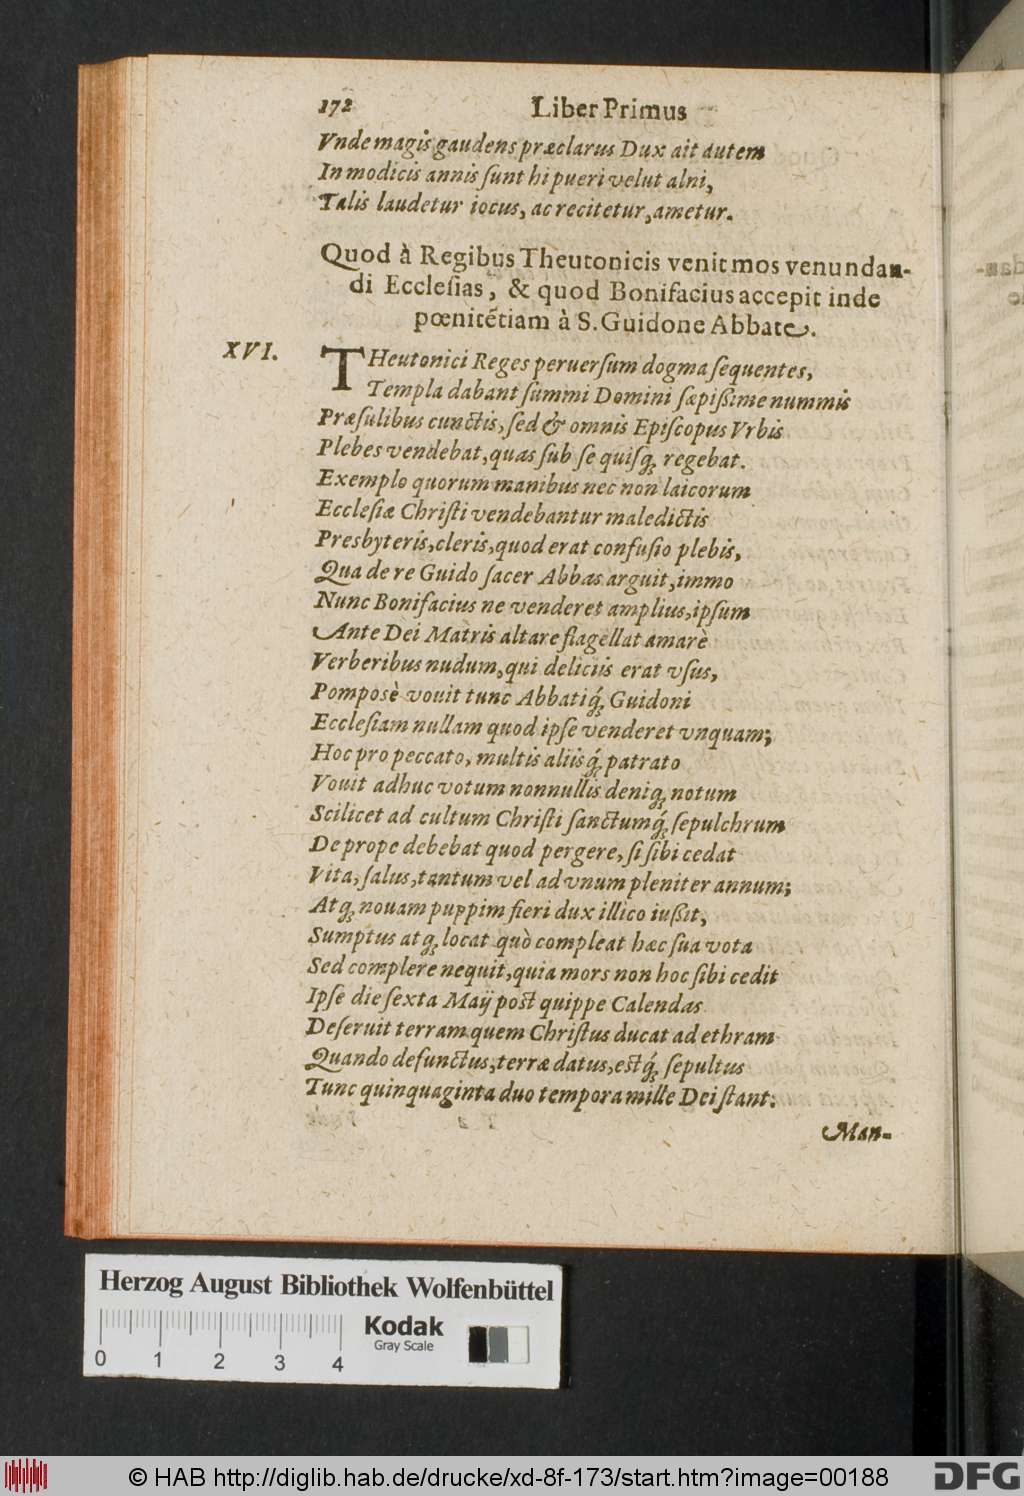 172 Liber Primus
Vnde magis gaudens præclarus Dux ait autem
In modicis annis ſunt hi pueri velut alni,
Talis laudetur iocus, ac recitetur, ametur.
Quod à Regibus Theutonicis venit mos venundan-
di Eccleſias, & quod Bonifacius accepit inde
pœnitẽtiam à S. Guidone Abbate.
XVI.
THeutonici Reges peruerſum dogma ſequentes,
Templa dabant ſummi Domini ſæpißime nummis
Præſulibus cunctis, ſed & omnis Epiſcopus Vrbis
Plebes vendebat, quas ſub ſe quiſq; regebat.
Exemplo quorum manibus nec non laicorum
Eccleſiæ Chriſti vendebantur maledictis
Presbyteris, cleris, quod erat confuſio plebis,
Qua de re Guido ſacer Abbas arguit, immo
Nunc Bonifacius ne venderet amplius, ipſum
Ante Dei Matris altare flagellat amarè
Verberibus nudum, qui deliciis erat vſus,
Pomposè vouit tunc Abbatiq́; Guidoni
Eccleſiam nullam quod ipſe venderet vnquam;
Hoc pro peccato, multis aliisq́; patrato
Vouit adhuc votum nonnullis deniq; notum
Scilicet ad cultum Chriſti ſanctumq́; ſepulchrum
De prope debebat quod pergere, ſi ſibi cedat
Vita, ſalus, tantum vel ad vnum pleniter annum;
Atq; nouam puppim fieri dux illico iußit,
Sumptus atq; locat quò compleat hæc ſua vota
Sed complere nequit, quia mors non hoc ſibi cedit
Ipſe die ſexta Maij post quippe Calendas
Deſeruit terram quem Chriſtus ducat ad ethram
Quando defunctus, terræ datus, estq́; ſepultus
Tunc quinquaginta duo tempora mille Dei ſtant.
Man-
Herzog August Bibliothek Wolfenbüttel
Kodak
Gray Scale
0 1 2 3 4
© HAB http://diglib.hab.de/drucke/xd-8f-173/start.htm?image=00188
DFG